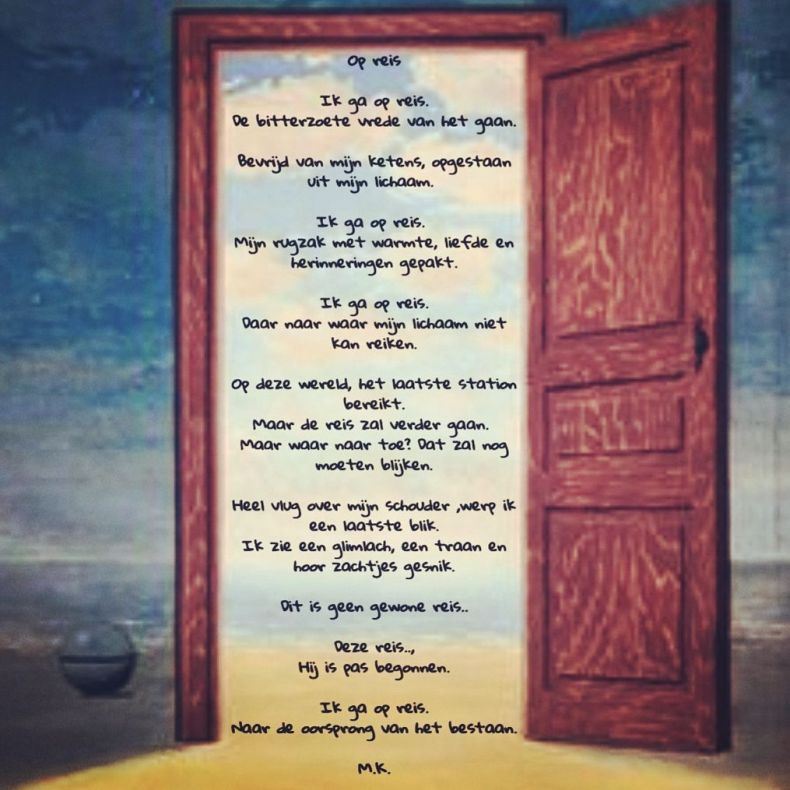 Op reis
Ik ga op reis.
De bitterzoete vrede van het gaan.
Bevrijd van mijn ketens, opgestaan
uit mijn lichaam.
Ik ga op reis.
Mijn rugzak met warmte, liefde en
herinneringen gepakt.
Ik ga op reis.
Daar naar waar mijn lichaam niet
kan reiken.
Op deze wereld, het laatste station
bereikt.
Maar de reis zal verder gaan.
Maar waar naar toe? Dat zal nog
moeten blijken.
Heel vlug over mijn schouder ,werp ik
een laatste blik.
Ik zie een glimlach, een traan en
hoor zachtjes gesnik.
Dit is geen gewone reis..
Deze reis..,
Hij is pas begonnen.
Ik ga op reis.
Naar de oorsprong van het bestaan.
M.K.